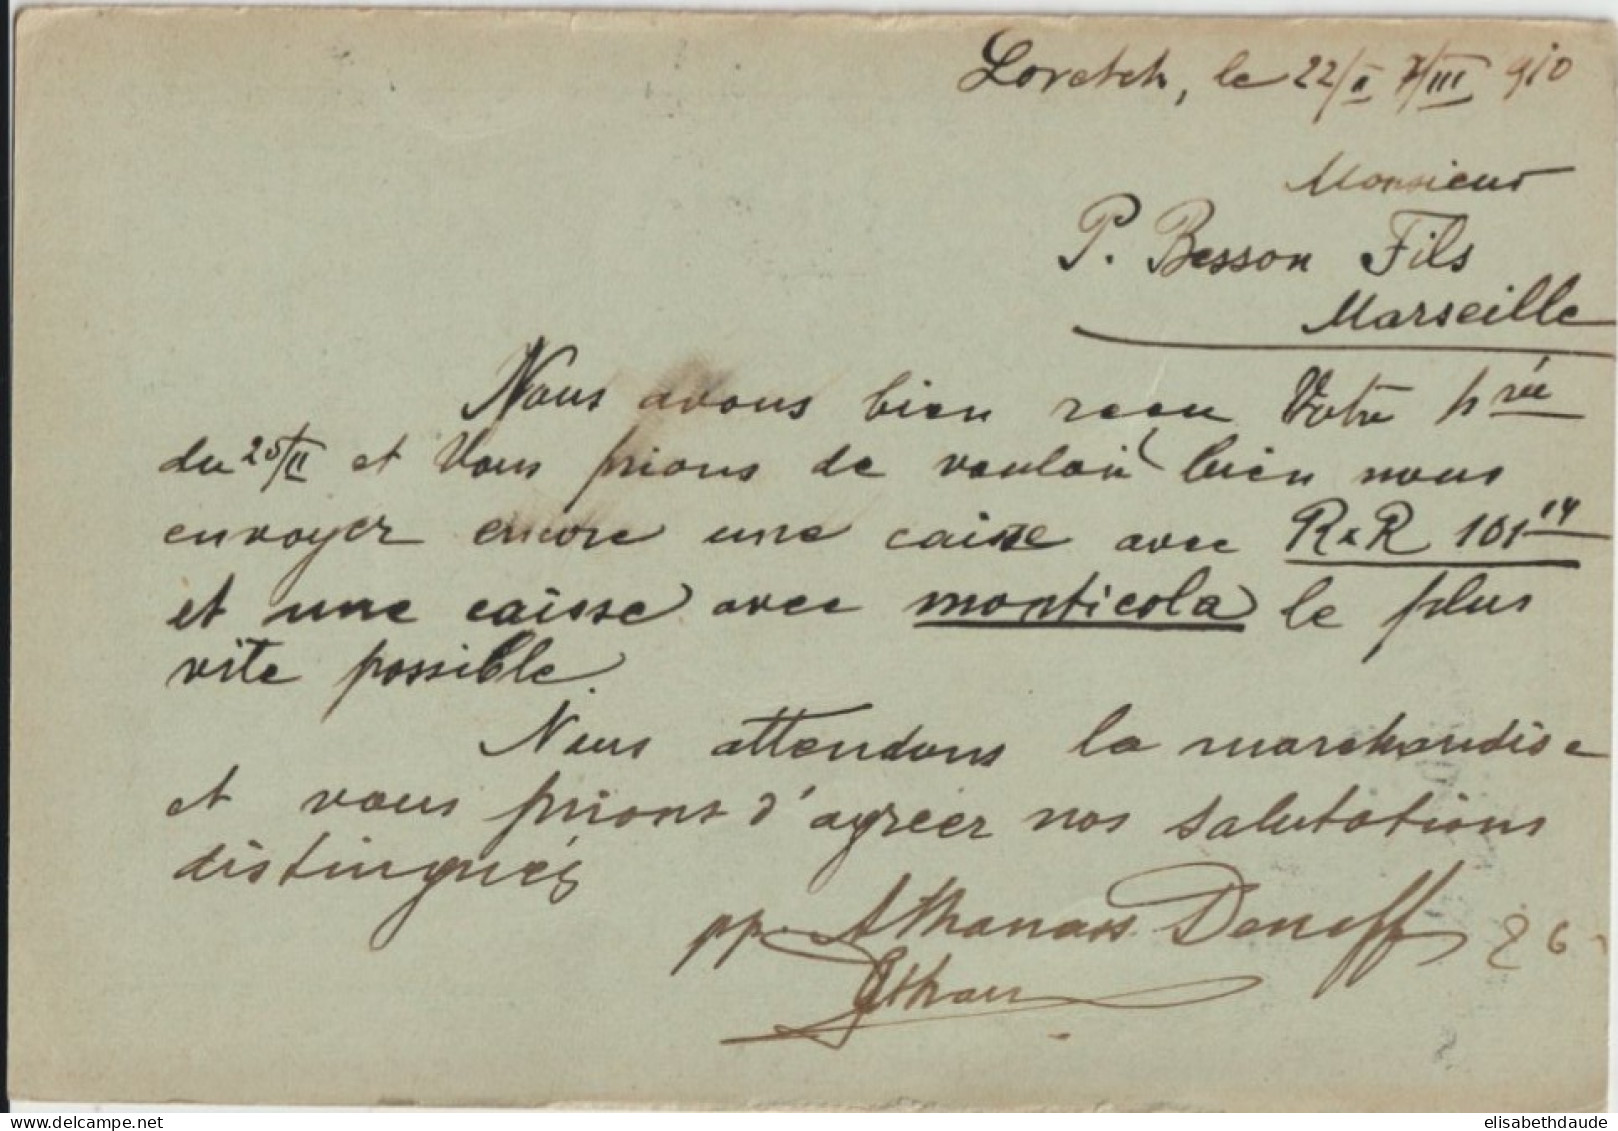 Lovetch, le 22/II 7/III 910
Monsieur
P. Besson Fils
Marseille
Nous avons bien reçu Votre hrée
du 25/II et Vous prions de vouloir bien nous
envoyer encore une caisse avec R x R 101 14
et une caisse avec monticola le plus
vite possible.
Nous attendons la marchandise
et vous prions d'agréer nos salutations
distingués
pp. Athanass Deneff 26
delcampe.net
elisabethdaude